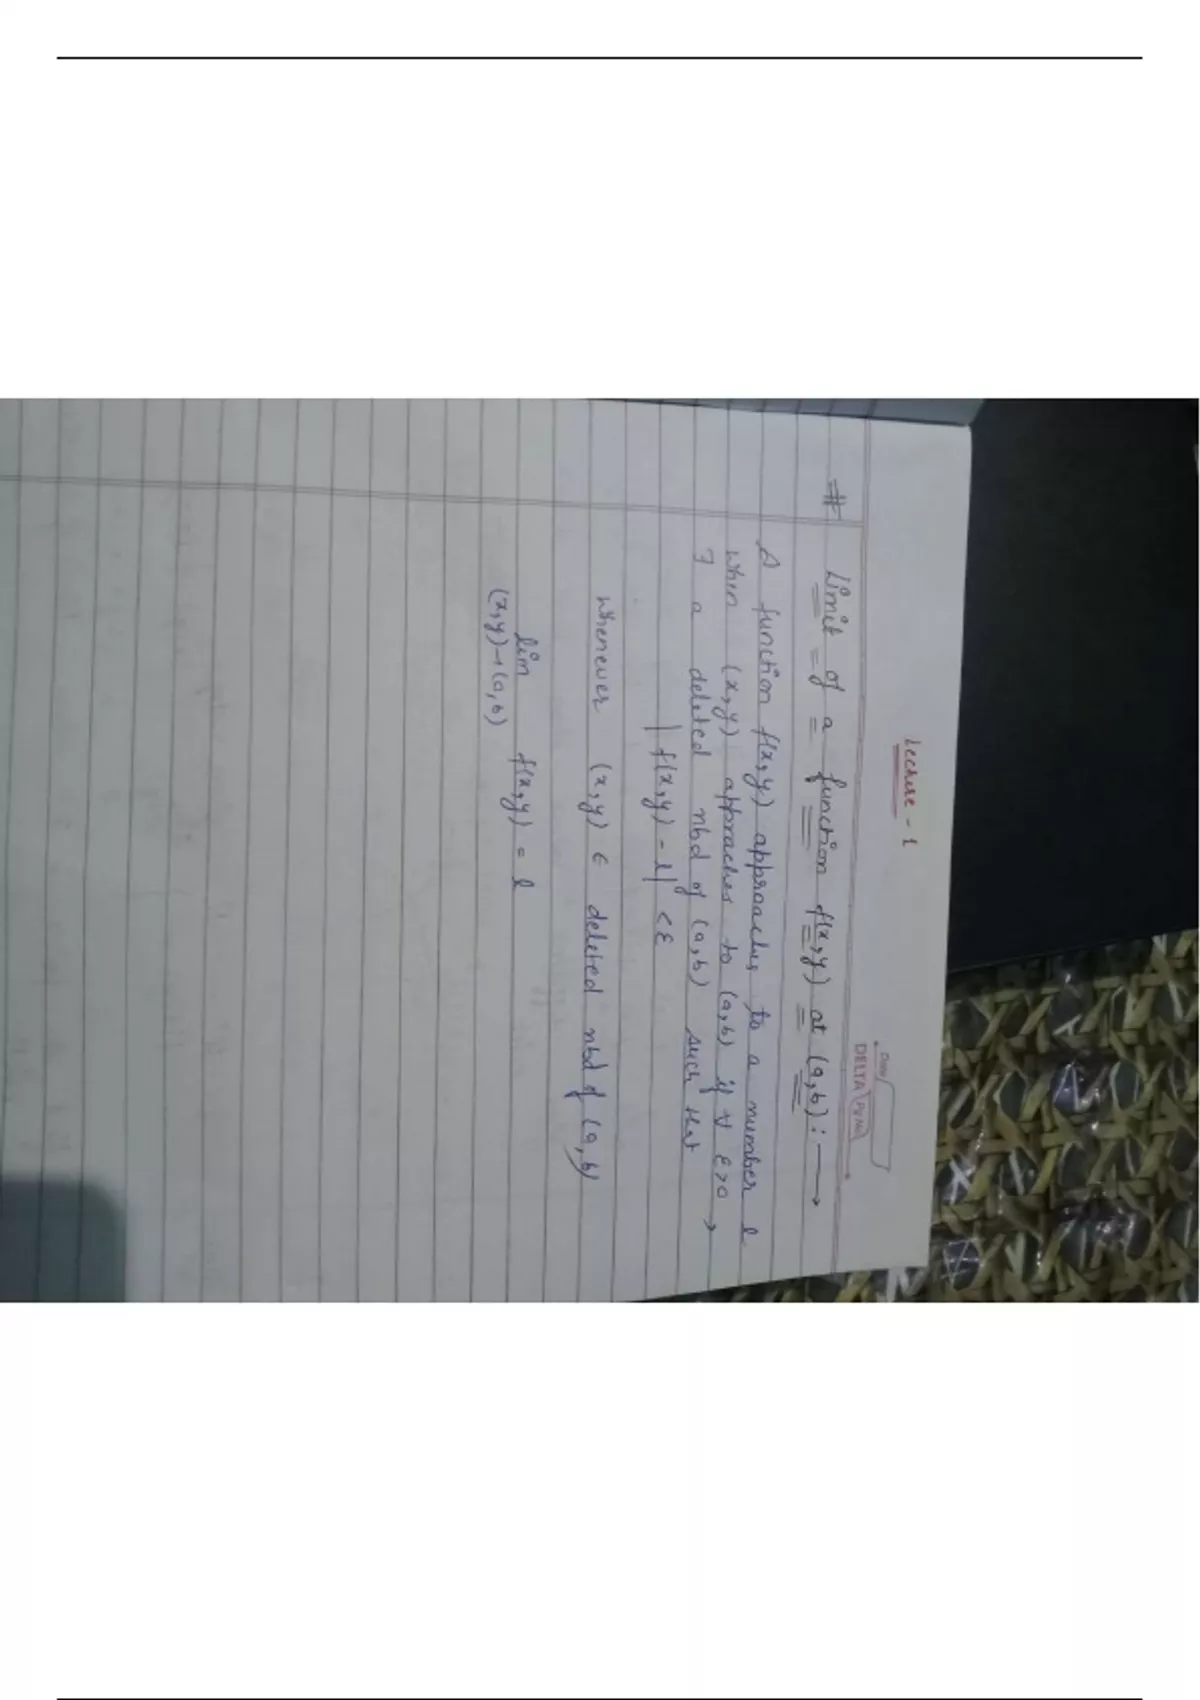 Date
DELTA Pg No.
Lecture - 1
# Limit of a function f(x,y) at (a,b) : ⟶
A function f(x,y) approaches to a number l
when (x,y) appraches to (a,b) if ∀ ε>0 →
∃ a deleted nbd of (a,b) such that
|f(x,y) - l| < ε
whenever (x,y) ∈ deleted nbd of (a,b)
lim f(x,y) = l
(x,y)→(a,b)